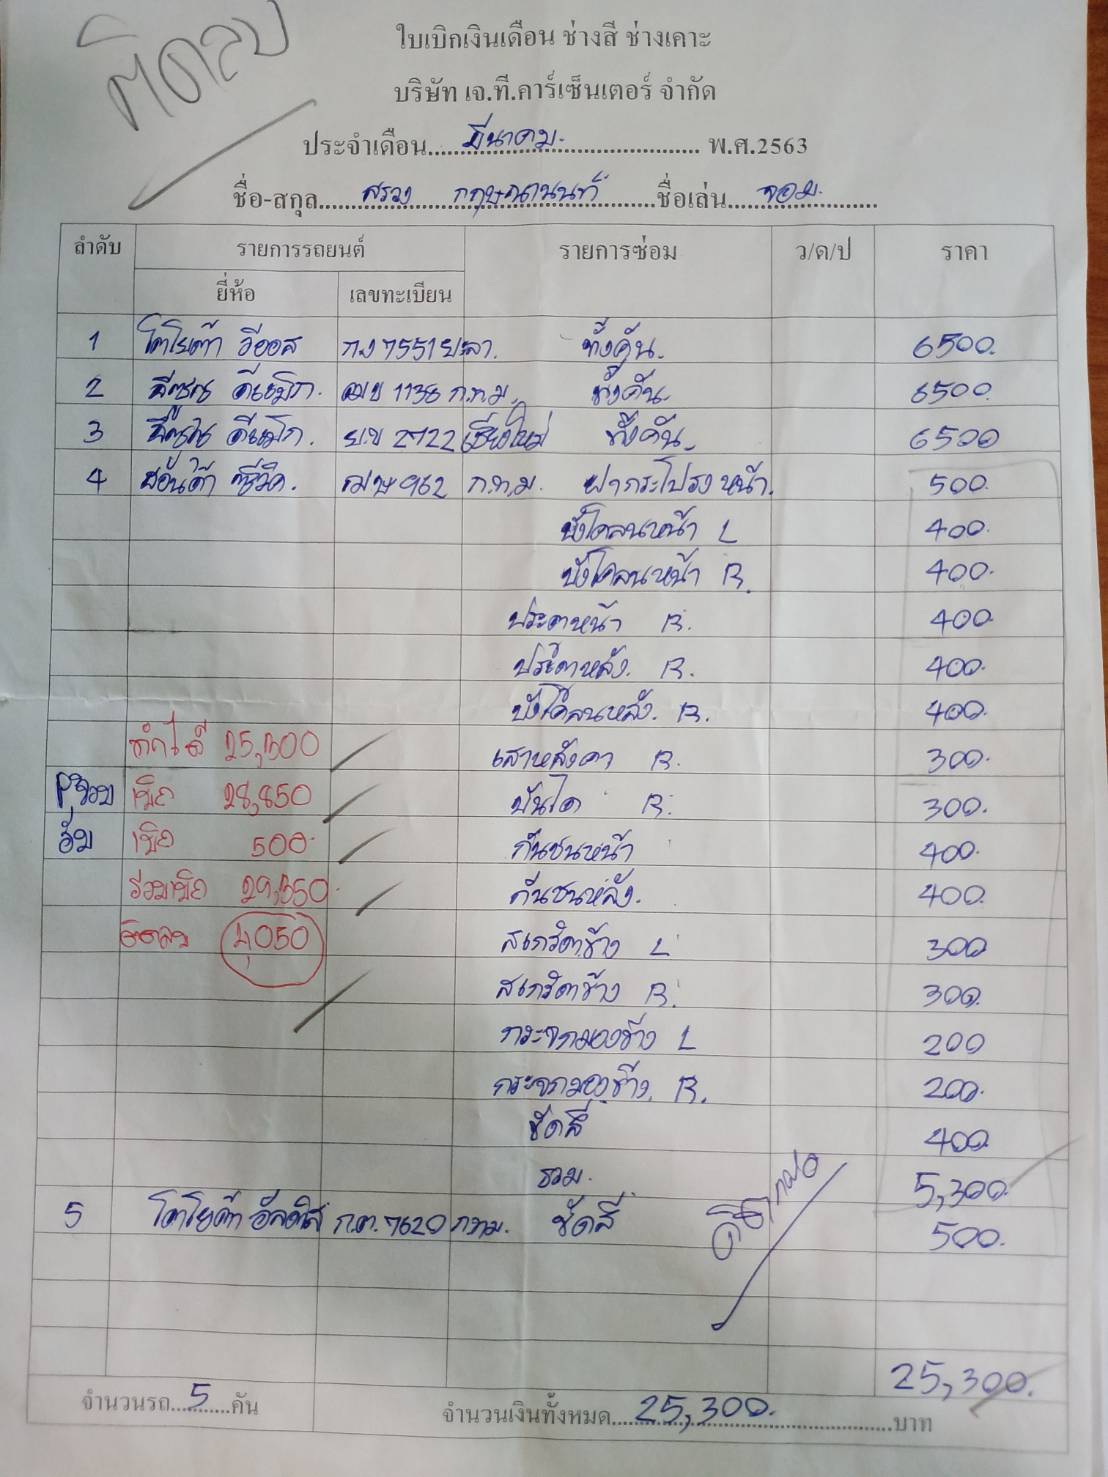 ติดลบ
ใบเบิกเงินเดือน ช่างสี ช่างเคาะ
บริษัท เจ.ที.คาร์เซ็นเตอร์ จำกัด
ประจำเดือน...มีนาคม.... พ.ศ.2563
ชื่อ-สกุล...สรวง กฤษณานนท์...ชื่อเล่น...จอม...
ลำดับ รายการรถยนต์ รายการซ่อม ว/ด/ป ราคา
ยี่ห้อ เลขทะเบียน
1 โตโยต้า วีออส กง 7551 ยะลา. ทั้งคัน. 6500.
2 อีซูซุ ดีแม็ก. 1138 ก.ท.ม. ทั้งคัน. 6500
3 อีซูซุ ดีแม็ก. ย.ข 2722 เชียงใหม่ ทั้งคัน. 6500
4 ฮอนด้า ซีวิค. 962 ก.ท.ม. ฝากระโปรงหน้า. 500
บังโคลนหน้า L 400.
บังโคลนหน้า R. 400.
ประตูหน้า R. 400
ประตูหลัง. R. 400.
บังโคลนหลัง. R. 400.
ทำได้ 25,300 เสาหลังคา R. 300.
P'จอม เบิก 28,850 บันได R. 300.
อั๋ม เบิก 500. กันชนหน้า 400.
รวมเบิก 29,350. กันชนหลัง. 400.
ติดลบ 4,050 สเกิร์ตข้าง L 300
สเกิร์ตข้าง R. 300.
กระจกมองข้าง L 200
กระจกมองข้าง. R. 200.
ขัดสี 400
รวม. 5,300.
5 โตโยต้า อัลติส ก.ต. 7620 กทม. ขัดสี 500.
25,300.
จำนวนรถ...5...คัน จำนวนเงินทั้งหมด...25,300....บาท